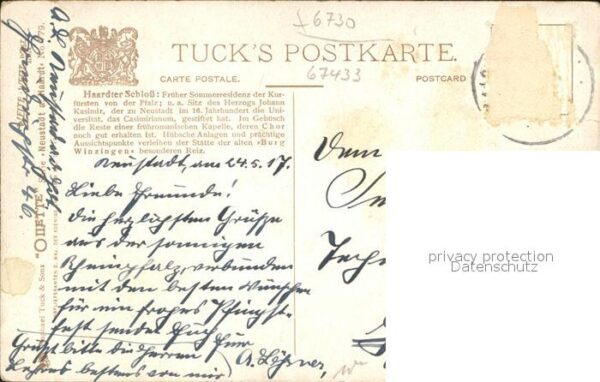 ±6730
TUCK'S POSTKARTE.
67433
CARTE POSTALE.
POSTCARD
Haardter Schloß: Früher Sommerresidenz der Kur-
fürsten von der Pfalz; u. a. Sitz des Herzogs Johann
Kasimir, der zu Neustadt im 16. Jahrhundert die Uni-
versitat, das Casimirianum, gestiftet hat. Im Gebüsch
die Reste einer frühromanischen Kapelle, deren Chor
noch gut erhalten ist. Hübsche Anlagen und prächtige
Aussichtspunkte verleihen der Stätte der alten „Burg
Winzingen" besonderen Reiz.
Neustadt, am 24.5.17.
Liebe Freunde!
Die herzlichsten Grüße
aus der sonnigen
Rheinpfalz, verbunden
mit den besten Wünschen
für ein frohes Pfingst-
fest sendet Euch Euer
A.
Grüßt bitte die Herren
Lehrers bestens von mir
Dem
Techn
"OILETTE"
Raphael Tuck & Sons
Serie »Neustadt a. Haardt« No. 979.
privacy protection
Datenschutz